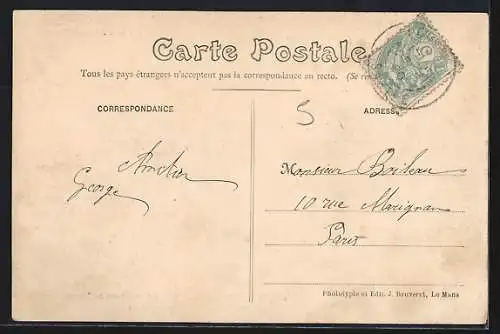 Carte Postale
Tous les pays étrangers n'acceptent pas la correspondance au recto. (Se
CORRESPONDANCE
ADRESSE
5
George
Monsieur Boileau
10 rue Marignan
Paris
Phototypie et Edit. J. Bouveret, Le Mans